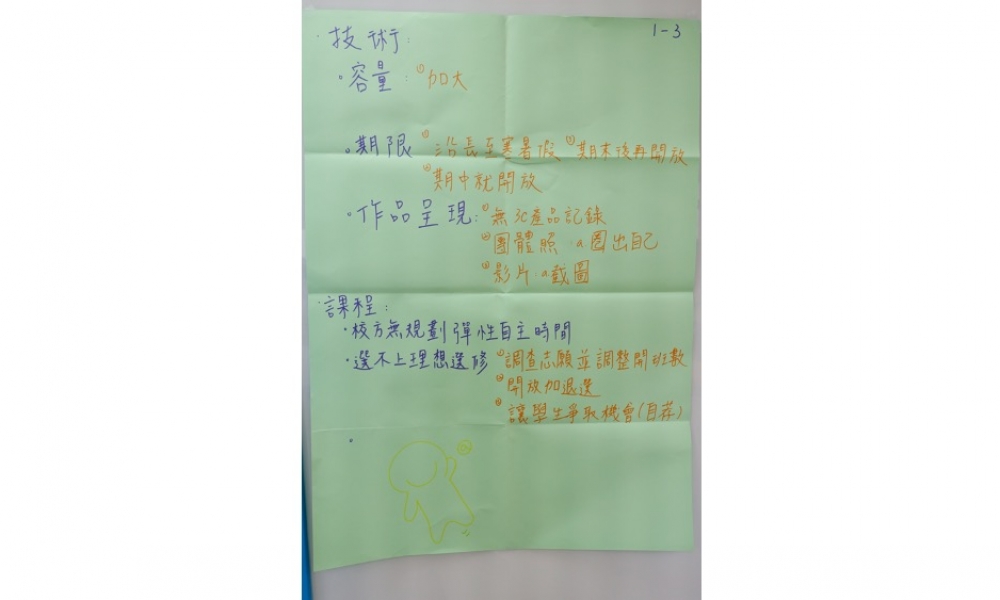 1-3
·技術:
·容量:①加大
·期限 ①沿長至寒暑假 ③期末後再開放
②期中就開放
·作品呈現:①無3c產品記錄
②團體照 圈出自己
③影片 截圖
·課程:
·校方無規劃彈性自主時間
·選不上理想選修 ①調查志願並調整開班數
②開放加退選
③讓學生爭取機會(自荐)